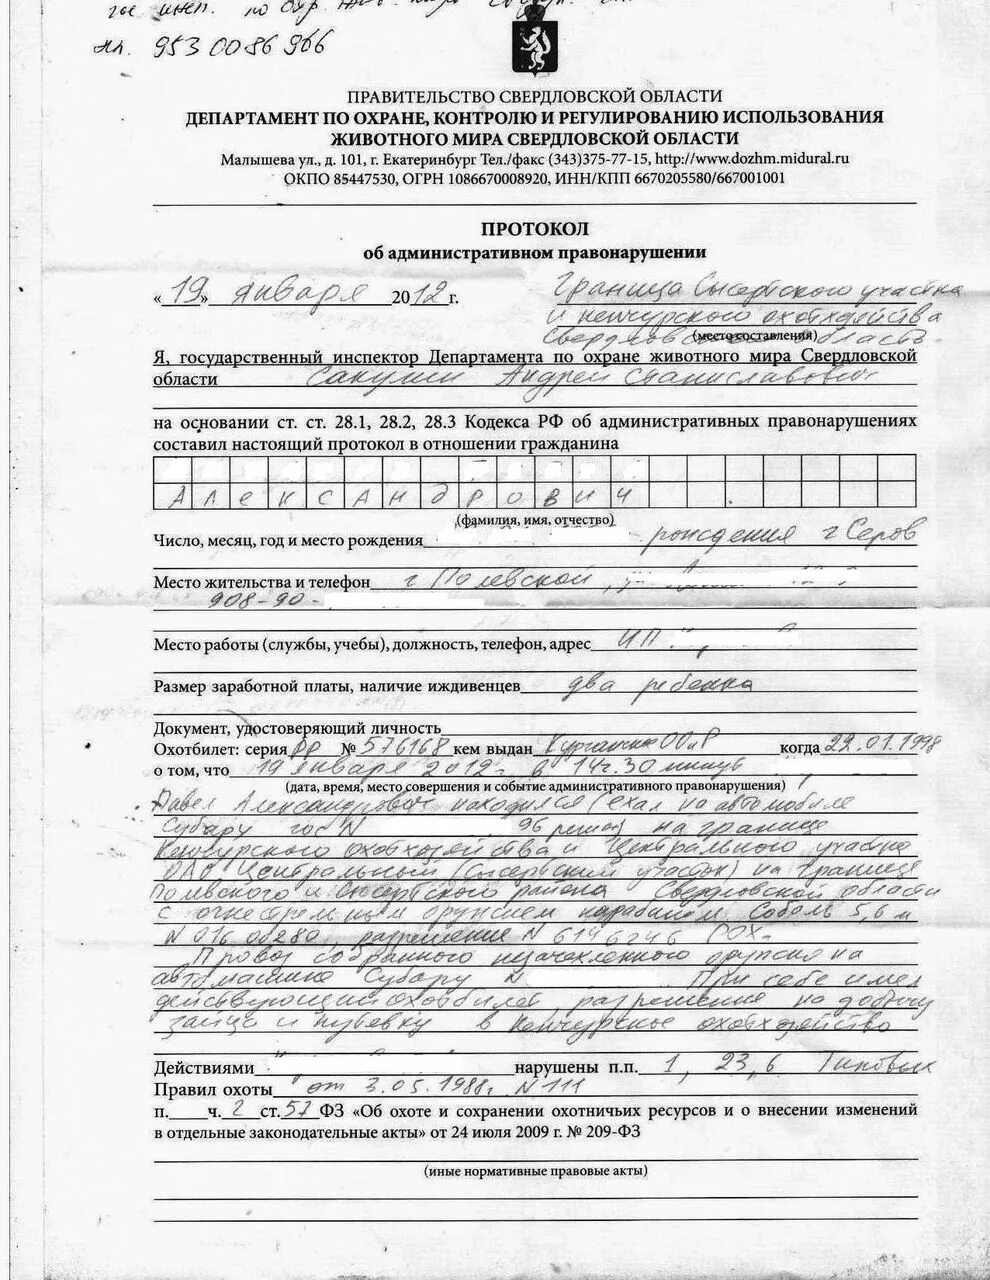 гос. инсп. по охр.
тл. 953 0086 966
ПРАВИТЕЛЬСТВО СВЕРДЛОВСКОЙ ОБЛАСТИ
ДЕПАРТАМЕНТ ПО ОХРАНЕ, КОНТРОЛЮ И РЕГУЛИРОВАНИЮ ИСПОЛЬЗОВАНИЯ
ЖИВОТНОГО МИРА СВЕРДЛОВСКОЙ ОБЛАСТИ
Малышева ул., д. 101, г. Екатеринбург Тел./факс (343)375-77-15, http://www.dozhm.midural.ru
ОКПО 85447530, ОГРН 1086670008920, ИНН/КПП 6670205580/667001001
ПРОТОКОЛ
об административном правонарушении
«19» января 2012 г. Граница Сысертского участка
и кенчурского охотхозяйства
Свердловская область
(место составления)
Я, государственный инспектор Департамента по охране животного мира Свердловской
области Сакулин Андрей Станиславович
на основании ст. ст. 28.1, 28.2, 28.3 Кодекса РФ об административных правонарушениях
составил настоящий протокол в отношении гражданина
АлеКСАНдРОвИЧ
(фамилия, имя, отчество)
Число, месяц, год и место рождения рождения г Серов
Место жительства и телефон г Полевской,
908-90-
Место работы (службы, учебы), должность, телефон, адрес ИП
Размер заработной платы, наличие иждивенцев два ребенка
Документ, удостоверяющий личность
Охотбилет: серия РР № 576168 кем выдан когда 22.01.1998
о том, что 19 января 2012г в 14г.30 минут
(дата, время, место совершения и событие административного правонарушения)
Павел Александрович находился (ехал на автомобиле
Субару гос N 96 регион) на границе
Кенчурского охотхозяйства и Центрального участка
ОАО Центральный (Сысертский участок) на границе
Полевского и Сысертского района Свердловской области
с огнестрельным оружием карабином Соболь 5,6 м
N 016 00280, разрешение N 6146246 РОХ-
Провоз собранного незачехленного оружия на
автомашине Субару N При себе имел
действующий охотбилет, разрешение на добычу
зайца и путевку в Кенчурское охотхозяйство
Действиями нарушены п.п. 1, 23,6 Типовых
Правил охоты от 3.05.1988г. N 111
п. ч. 2 ст. 57 ФЗ «Об охоте и сохранении охотничьих ресурсов и о внесении изменений
в отдельные законодательные акты» от 24 июля 2009 г. № 209-ФЗ
(иные нормативные правовые акты)